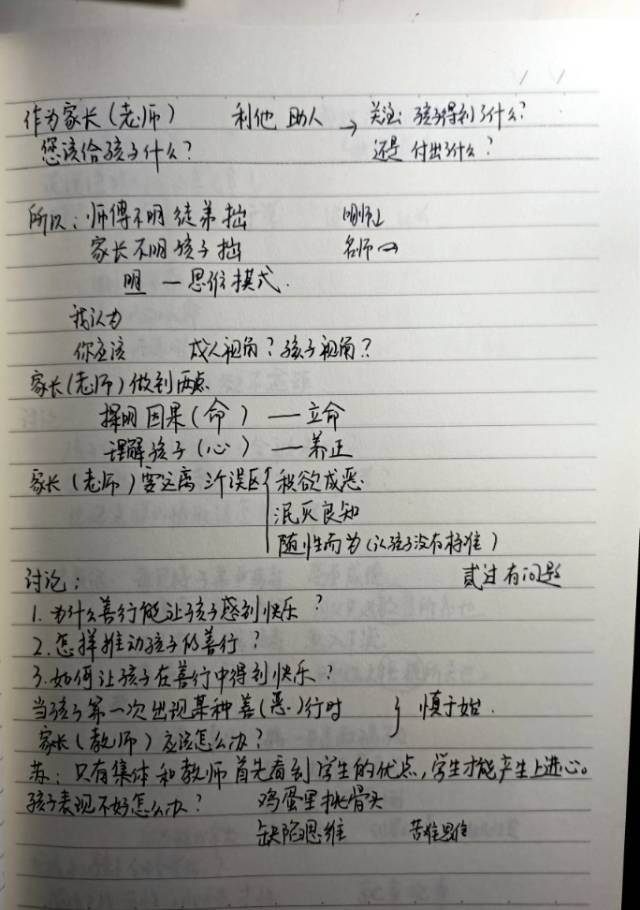 作为家长（老师） 利他 助人 → 关注：孩子得到了什么？
您该给孩子什么？ 还是 付出了什么？
所以：师傅不明徒弟拙 明师
家长不明孩子拙 名师
明 — 思维模式.
我认为
你应该 成人视角？孩子视角？
家长（老师）做到两点
择明因果（命）— 立命
理解孩子（心）— 养正
家长（老师）要远离 误区 { 积欲成恶
泯灭良知
随性而为（认孩子没有标准）
讨论： 贰过有问题
1. 为什么善行能让孩子感到快乐？
2. 怎样推动孩子的善行？
3. 如何让孩子在善行中得到快乐？
当孩子第一次出现某种善（恶）行时 } 慎于始.
家长（教师）应该怎么办？
苏：只有集体和教师首先看到学生的优点，学生才能产生上进心。
孩子表现不好怎么办？ 鸡蛋里挑骨头
缺陷思维 苦难思维